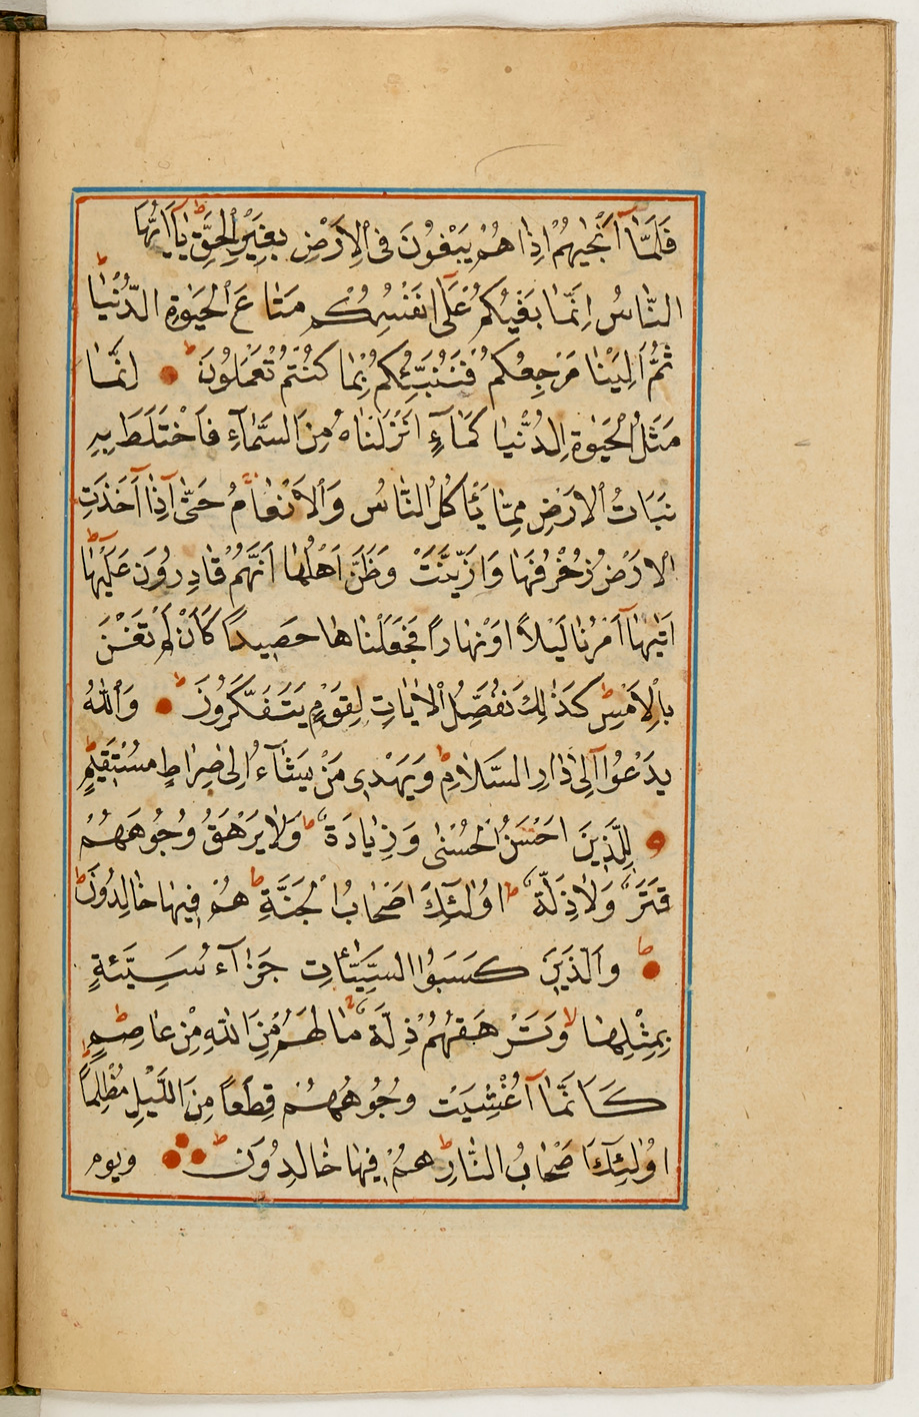 فَلَمَّٓا اَنْجٰيهُمْ اِذَا هُمْ يَبْغُونَ فِى الْاَرْضِ بِغَيْرِ الْحَقِّ ط يَٓا اَيُّهَا
النَّاسُ اِنَّمَا بَغْيُكُمْ عَلٰٓى اَنْفُسِكُمْ مَتَاعَ الْحَيٰوةِ الدُّنْيَا ط
ثُمَّ اِلَيْنَا مَرْجِعُكُمْ فَنُنَبِّئُكُمْ بِمَا كُنْتُمْ تَعْمَلُونَ ط اِنَّمَا
مَثَلُ الْحَيٰوةِ الدُّنْيَا كَمَٓاءٍ اَنْزَلْنَاهُ مِنَ السَّمَٓاءِ فَاخْتَلَطَ بِهِ
نَبَاتُ الْاَرْضِ مِمَّا يَأْكُلُ النَّاسُ وَالْاَنْعَامُ حَتّٰٓى اِذَٓا اَخَذَتِ
الْاَرْضُ زُخْرُفَهَا وَازَّيَّنَتْ وَظَنَّ اَهْلُهَٓا اَنَّهُمْ قَادِرُونَ عَلَيْهَٓا ط
اَتٰيهَٓا اَمْرُنَا لَيْلاً اَوْ نَهَاراً فَجَعَلْنَاهَا حَصِيداً كَاَنْ لَمْ تَغْنَ
بِالْاَمْسِ ط كَذٰلِكَ نُفَصِّلُ الْاٰيَاتِ لِقَوْمٍ يَتَفَكَّرُونَ ط وَاللّٰهُ
يَدْعُوٓا اِلٰى دَارِ السَّلَامِ ط وَيَهْدِى مَنْ يَشَٓاءُ اِلٰى صِرَاطٍ مُسْتَقِيمٍ ط
لِلَّذِينَ اَحْسَنُوا الْحُسْنٰى وَزِيَادَةٌ ط وَلَا يَرْهَقُ وُجُوهَهُمْ
قَتَرٌ وَلَا ذِلَّةٌ ط اُولٰٓئِكَ اَصْحَابُ الْجَنَّةِ ط هُمْ فِيهَا خَالِدُونَ ط
ط وَالَّذِينَ كَسَبُوا السَّيِّئَاتِ جَزَٓاءُ سَيِّئَةٍ
بِمِثْلِهَا لا وَتَرْهَقُهُمْ ذِلَّةٌ ط مَا لَهُمْ مِنَ اللّٰهِ مِنْ عَاصِمٍ ط
كَاَنَّمَٓا اُغْشِيَتْ وُجُوهُهُمْ قِطَعاً مِنَ اللَّيْلِ مُظْلِماً
اُولٰٓئِكَ اَصْحَابُ النَّارِ ط هُمْ فِيهَا خَالِدُونَ ط ويوم